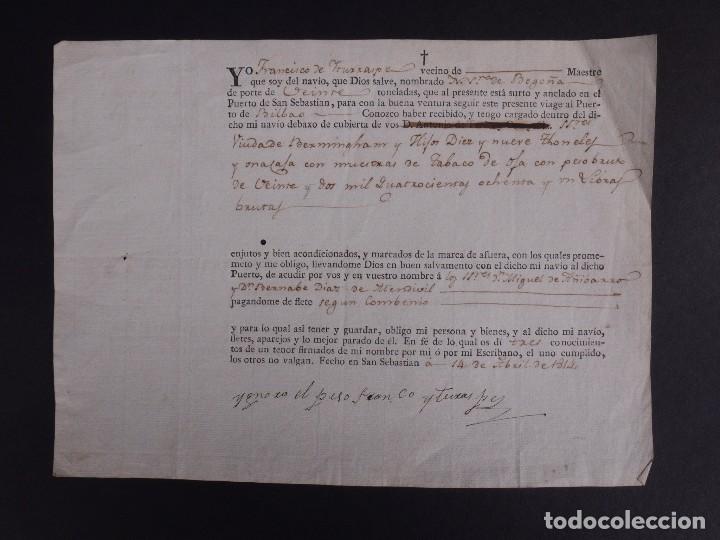 ✝
YO Francisco de Yturraspe vecino de Maestre
que soy del navio, que Dios salve, nombrado N. Sra. de Begoña
de porte de Veinte toneladas, que al presente está surto y anclado en el
Puerto de San Sebastian, para con la buena ventura seguir este presente viage al Puer-
to de Bilbao Conozco haber recibido, y tengo cargado dentro del di-
cho mi navio debaxo de cubierta de vos D. Antonio de Sres
Viuda de Bermingham y Hijos Diez y nueve thoneles
y una caxa con muestras de Tabaco de oja con peso brut
de Veinte y dos mil quatrocientas ochenta y un Libras
brutas
enjutos y bien acondicionados, y marcados de la marca de afuera, con los quales prome-
meto y me obligo, llevandome Dios en buen salvamento con el dicho mi navio al dicho
Puerto, de acudir por vos y en vuestro nombre á los Sres Dn. Miguel de
y Dn Bernabe Diaz de Mendivil
pagandome de flete segun Combenio
y para lo qual asi tener y guardar, obligo mi persona y bienes, y al dicho mi navio,
fletes, aparejos y lo mejor parado de él. En fé de lo qual os di tres conocimien-
tos de un tenor firmados de mi nombre por mi ó por mi Escribano, el uno cumplido,
los otros no valgan. Fecho en San Sebastian á 14 de Abril de 1814
ygnoro el peso Franco Yturraspe
todocoleccion.net